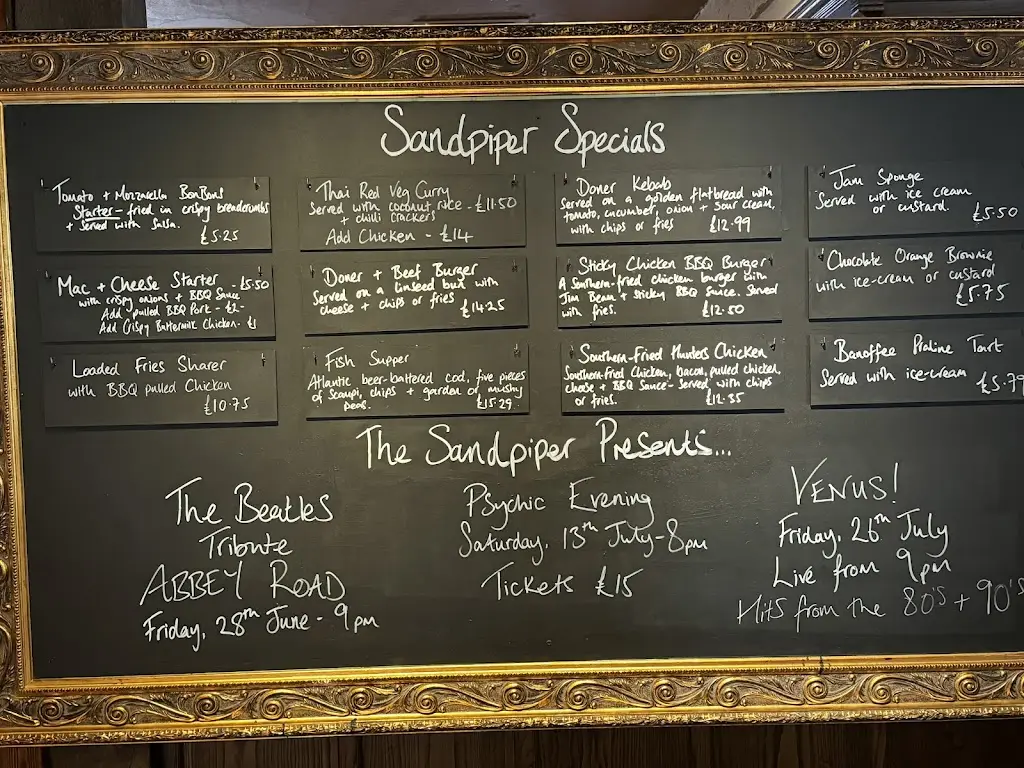 Sandpiper Specials
Tomato + Mozzarella BonBons
Starter - fried in crispy breadcrumbs
+ Served with Salsa.
£5.25
Mac + Cheese Starter - £5.50
with crispy onions + BBQ Sauce
Add pulled BBQ Pork - £2-
Add Crispy Buttermilk Chicken - £1
Loaded Fries Sharer
with BBQ pulled Chicken
£10.75
Thai Red Veg Curry
Served with coconut rice - £11.50
+ chilli crackers
Add Chicken - £14
Doner + Beef Burger
Served on a linseed bun with
cheese + chips or fries
£14.25
Fish Supper
Atlantic beer-battered cod, five pieces
of Scampi, chips + garden or mushy
peas.
£15.29
Doner Kebab
Served on a golden flatbread with
tomato, cucumber, onion + sour cream,
with chips or fries
£12.99
Sticky Chicken BBQ Burger
A Southern-fried chicken burger with
Jim Beam + sticky BBQ sauce. Served
with fries.
£12.50
Southern-Fried Hunters Chicken
Southern-fried Chicken, bacon, pulled chicken,
cheese + BBQ Sauce - Served with chips
or fries.
£12.85
Jam Sponge
Served with ice cream
or custard.
£5.50
Chocolate Orange Brownie
with ice-cream or custard
£5.75
Banoffee Praline Tart
Served with ice-cream
£5.79
The Sandpiper Presents...
The Beatles
Tribute
ABBEY ROAD
Friday, 28th June - 9pm
Psychic Evening
Saturday, 13th July - 8pm
Tickets £15
VENUS!
Friday, 26th July
Live from 9pm
Hits from the 80's + 90's